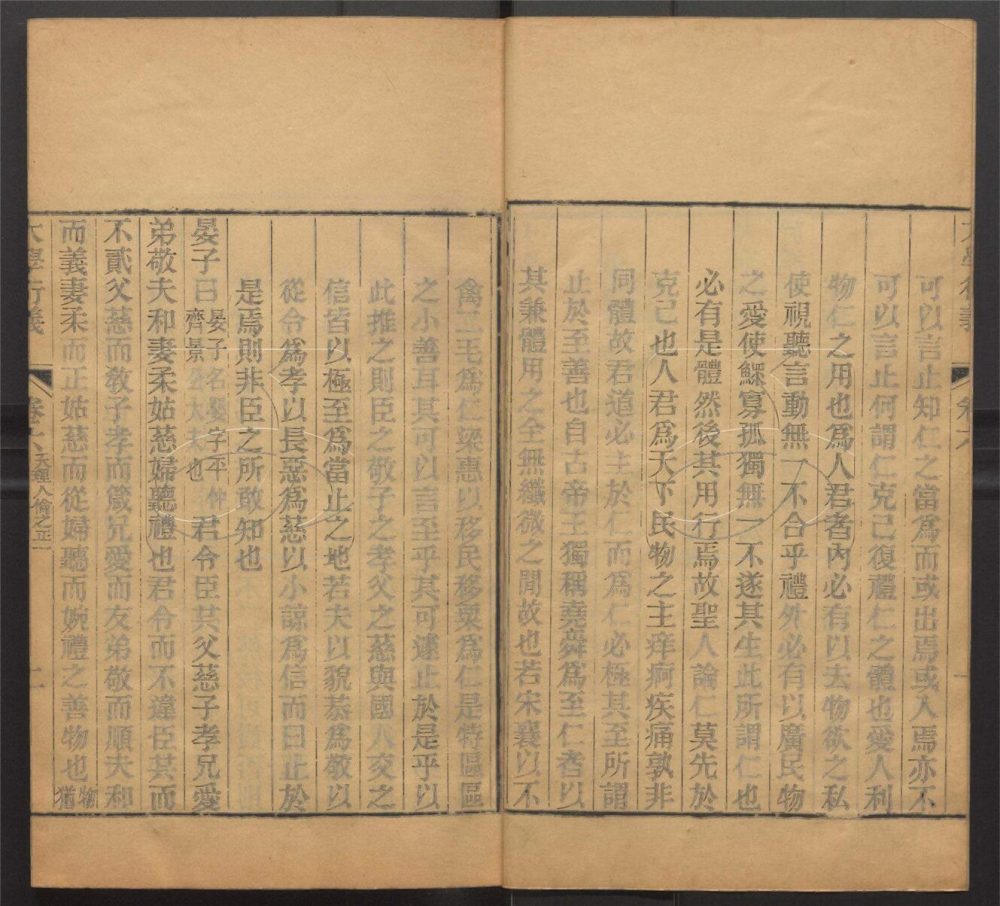 可以言止知仁之當爲而或出焉或入焉亦不
可以言止何謂仁克己復禮仁之體也愛人利
物仁之用也爲人君者內必有以去物欲之私
使視聽言動無一不合乎禮外必有以廣民物
之愛使鰥寡孤獨無一不遂其生此所謂仁也
必有是體然後其用行焉故聖人論仁莫先於
克己也人君爲天下民物之主痒痾疾痛孰非
同體故君道必主於仁而爲仁必極其至所謂
止於至善也自古帝王獨稱堯舜爲至仁者以
其兼體用之全無纖微之閒故也若宋襄以不
禽二毛爲仁梁惠以移民移粟爲仁是特區區
之小善耳其可以言至乎其可遽止於是乎以
此推之則臣之敬子之孝父之慈與國人交之
信皆以極至爲當止之地若夫以貌恭爲敬以
從令爲孝以長惡爲慈以小諒爲信而曰止於
是焉則非臣之所敢知也
晏子曰晏子名嬰字平仲齊景公大夫也君令臣共父慈子孝兄愛
弟敬夫和妻柔姑慈婦聽禮也君令而不違臣共而
不貳父慈而敎子孝而箴兄愛而友弟敬而順夫和
而義妻柔而正姑慈而從婦聽而婉禮之善物也物猶
大學衍義 卷六 天理人倫之正一 二